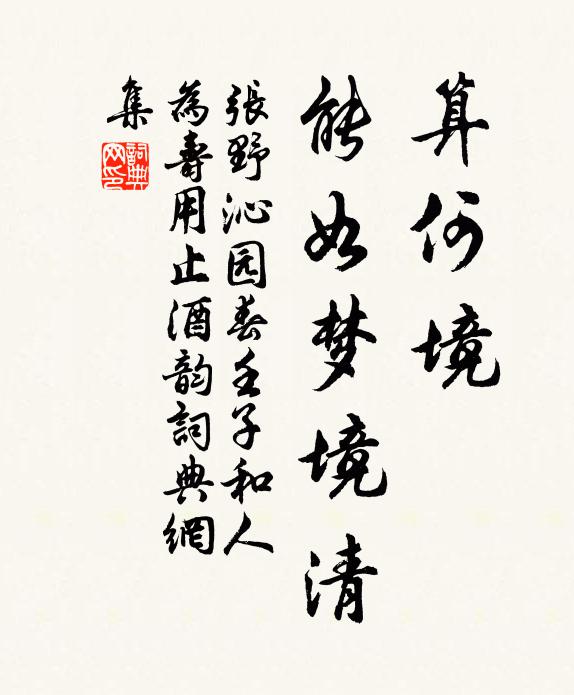 算何境
能如梦境清
張野沁园春壬子和人
為壽用止酒韵詞典網
集
詞典网印